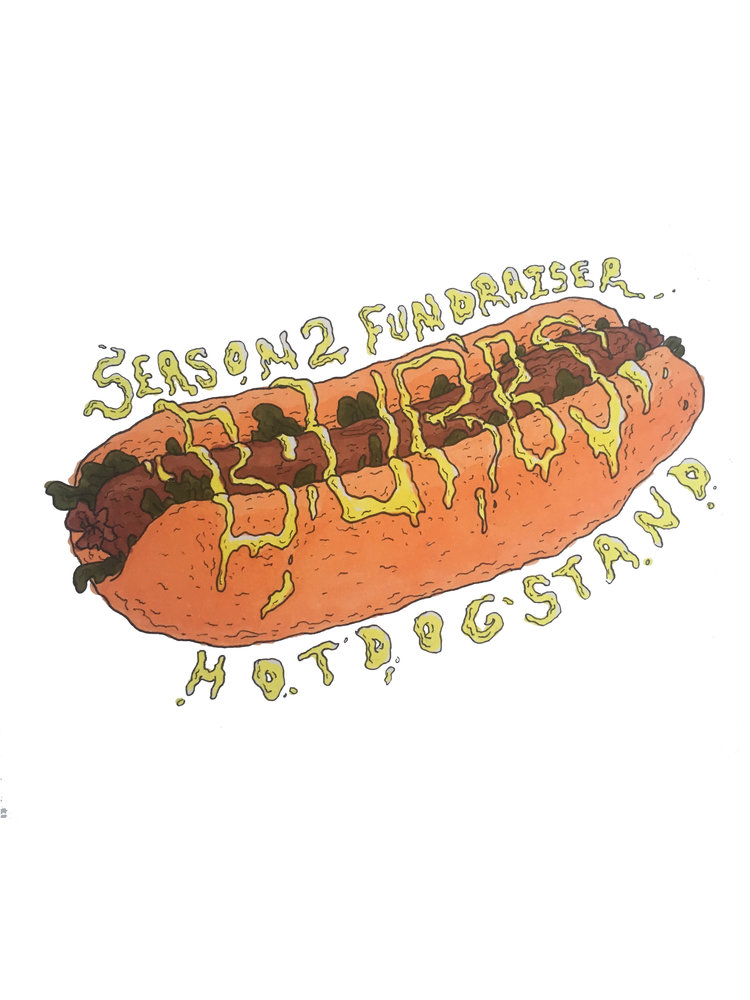 SEASON 2 FUNDRAISER
BURBS
HOTDOG STAND